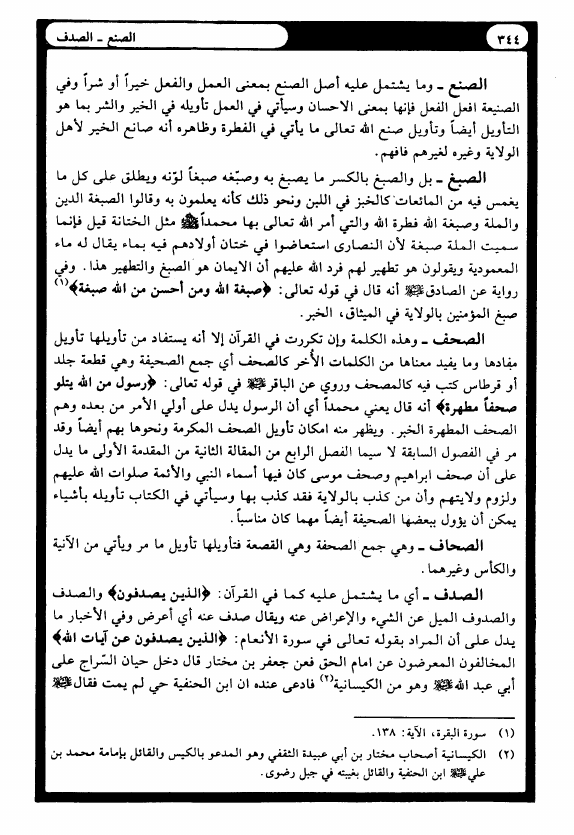 ٣٤٤ الصنع ـ الصدف
الصنع ـ وما يشتمل عليه أصل الصنع بمعنى العمل والفعل خيراً أو شراً وفي
الصنيعة افعل الفعل فإنها بمعنى الاحسان وسيأتي في العمل تأويله في الخير والشر بما هو
التأويل أيضاً وتأويل صنع الله تعالى ما يأتي في الفطرة وظاهره أنه صانع الخير لأهل
الولاية وغيره لغيرهم فافهم.
الصبغ ـ بل والصبغ بالكسر ما يصبغ به وصبّغه صبغاً لوّنه ويطلق على كل ما
يغمس فيه من المائعات كالخبز في اللبن ونحو ذلك كأنه يعلمون به وقالوا الصبغة الدين
والملة وصبغة الله فطرة الله والتي أمر الله تعالى بها محمداً ﷺ مثل الختانة قيل فإنما
سميت الملة صبغة لأن النصارى استعاضوا في ختان أولادهم فيه بماء يقال له ماء
المعمودية ويقولون هو تطهير لهم فرد الله عليهم أن الايمان هو الصبغ والتطهير هذا. وفي
رواية عن الصادق عليه السلام أنه قال في قوله تعالى: ﴿صبغة الله ومن أحسن من الله صبغة﴾(١)
صبغ المؤمنين بالولاية في الميثاق، الخبر.
الصحف ـ وهذه الكلمة وإن تكررت في القرآن إلا أنه يستفاد من تأويلها تأويل
مفادها وما يفيد معناها من الكلمات الأُخر كالصحف أي جمع الصحيفة وهي قطعة جلد
أو قرطاس كتب فيه كالمصحف وروي عن الباقر عليه السلام في قوله تعالى: ﴿رسول من الله يتلو
صحفاً مطهرة﴾ أنه قال يعني محمداً أي أن الرسول يدل على أولي الأمر من بعده وهم
الصحف المطهرة الخبر. ويظهر منه امكان تأويل الصحف المكرمة ونحوها بهم أيضاً وقد
مر في الفصول السابقة لا سيما الفصل الرابع من المقالة الثانية من المقدمة الأولى ما يدل
على أن صحف ابراهيم وصحف موسى كان فيها أسماء النبي والأئمة صلوات الله عليهم
ولزوم ولايتهم وأن من كذب بالولاية فقد كذب بها وسيأتي في الكتاب تأويله بأشياء
يمكن أن يؤول ببعضها الصحيفة أيضاً مهما كان مناسباً.
الصحاف ـ وهي جمع الصحفة وهي القصعة فتأويلها تأويل ما مر ويأتي من الآنية
والكأس وغيرهما.
الصدف ـ أي ما يشتمل عليه كما في القرآن: ﴿الذين يصدفون﴾ والصدف
والصدوف الميل عن الشيء والإعراض عنه ويقال صدف عنه أي أعرض وفي الأخبار ما
يدل على أن المراد بقوله تعالى في سورة الأنعام: ﴿الذين يصدفون عن آيات الله﴾
المخالفون المعرضون عن امام الحق فعن جعفر بن مختار قال دخل حيان السّراج على
أبي عبد الله عليه السلام وهو من الكيسانية(٢) فادعى عنده ان ابن الحنفية حي لم يمت فقال عليه السلام
(١) سورة البقرة، الآية: ١٣٨.
(٢) الكيسانية أصحاب مختار بن أبي عبيدة الثقفي وهو المدعو بالكيس والقائل بإمامة محمد بن
علي عليه السلام ابن الحنفية والقائل بغيبته في جبل رضوى.